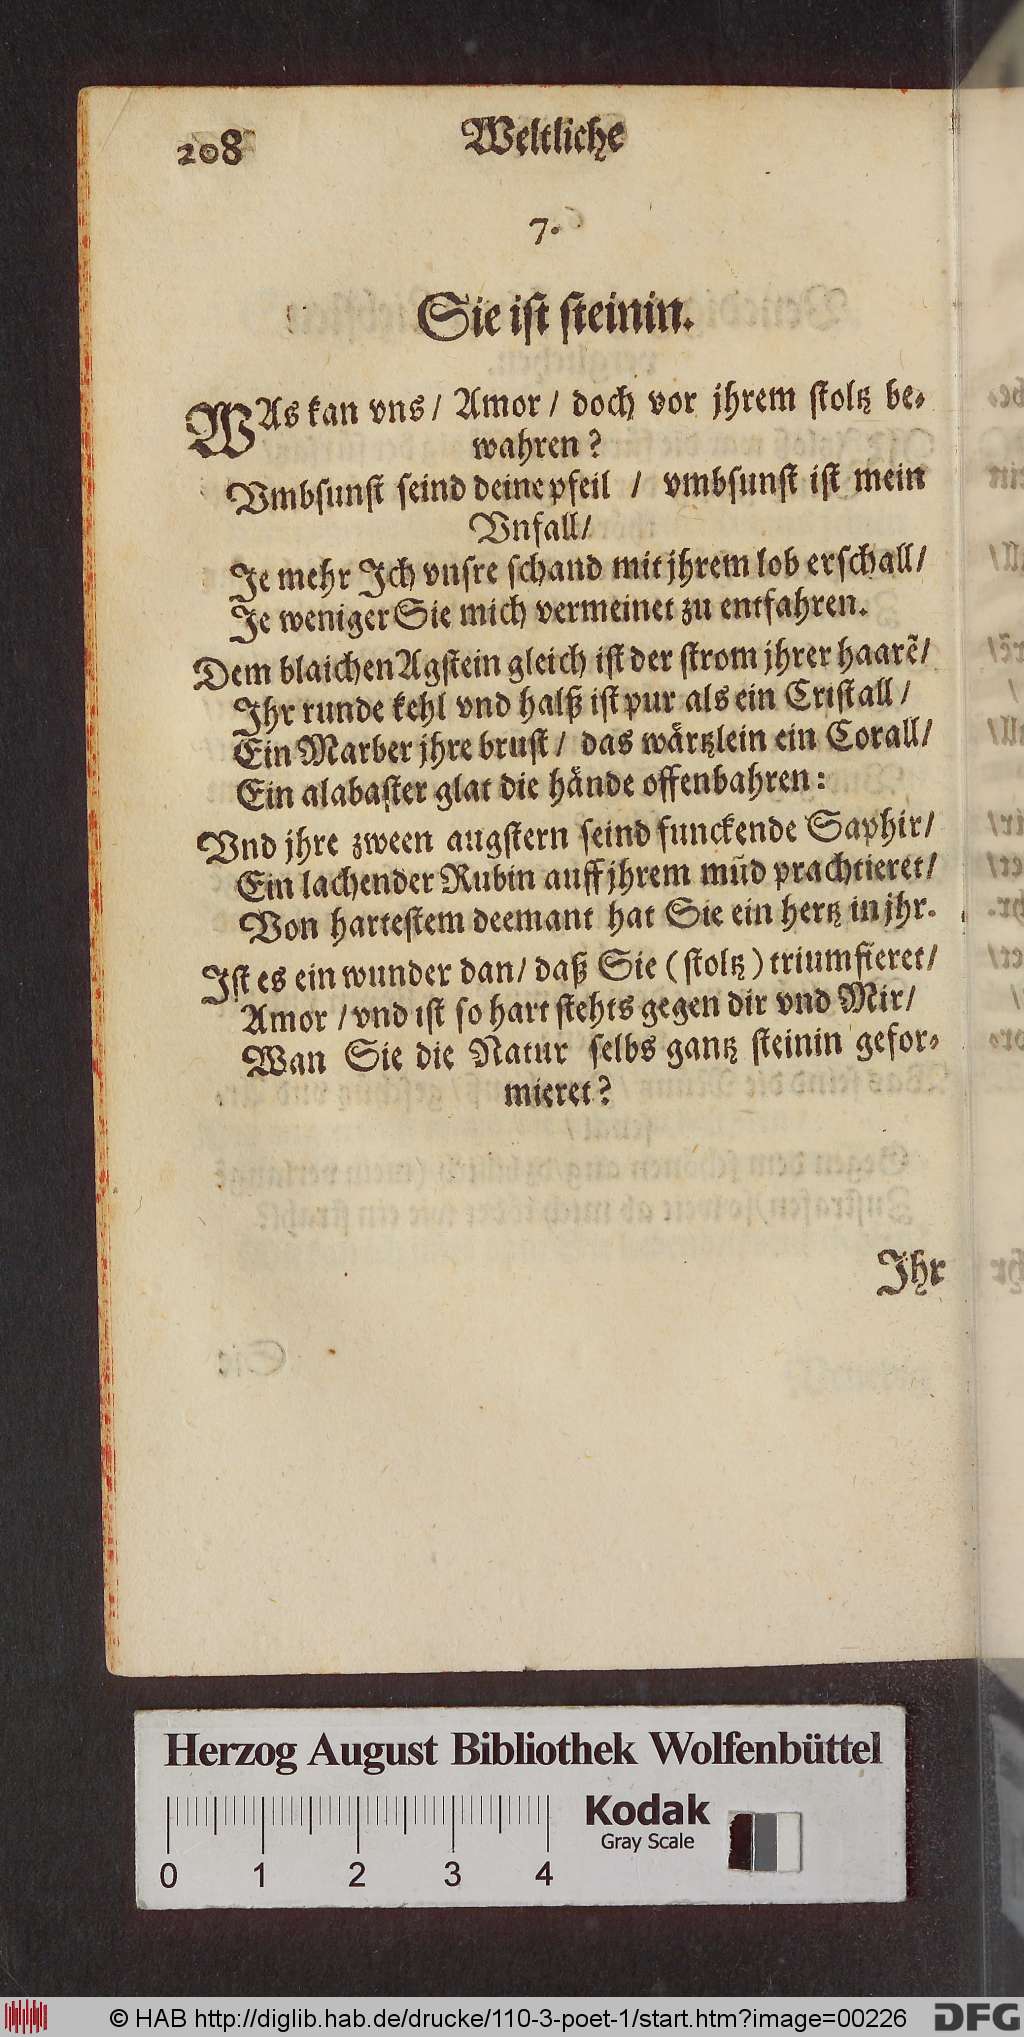 208 Weltliche
7.
Sie iſt ſteinin.
WAs kan vns / Amor / doch vor jhrem ſtoltz be⸗
wahren ?
Vmbſunſt ſeind deine pfeil / vmbſunſt iſt mein
Vnfall /
Je mehr Ich vnſre ſchand mit jhrem lob erſchall /
Je weniger Sie mich vermeinet zu entfahren.
Dem blaichen Agſtein gleich iſt der ſtrom jhrer haarẽ /
Ihr runde kehl vnd halß iſt pur als ein Criſtall /
Ein Marber jhre bruſt / das wärtzlein ein Corall /
Ein alabaſter glat die hände offenbahren :
Vnd jhre zween augſtern ſeind funckende Saphir /
Ein lachender Rubin auff jhrem mūd prachtieret /
Von harteſtem deemant hat Sie ein hertz in jhr.
Iſt es ein wunder dan / daß Sie ( ſtoltz ) triumfieret /
Amor / vnd iſt ſo hart ſtehts gegen dir vnd Mir /
Wan Sie die Natur ſelbs gantz ſteinin gefor⸗
mieret ?
Ihr
Herzog August Bibliothek Wolfenbüttel
Kodak
Gray Scale
0 1 2 3 4
© HAB http://diglib.hab.de/drucke/110-3-poet-1/start.htm?image=00226
DFG